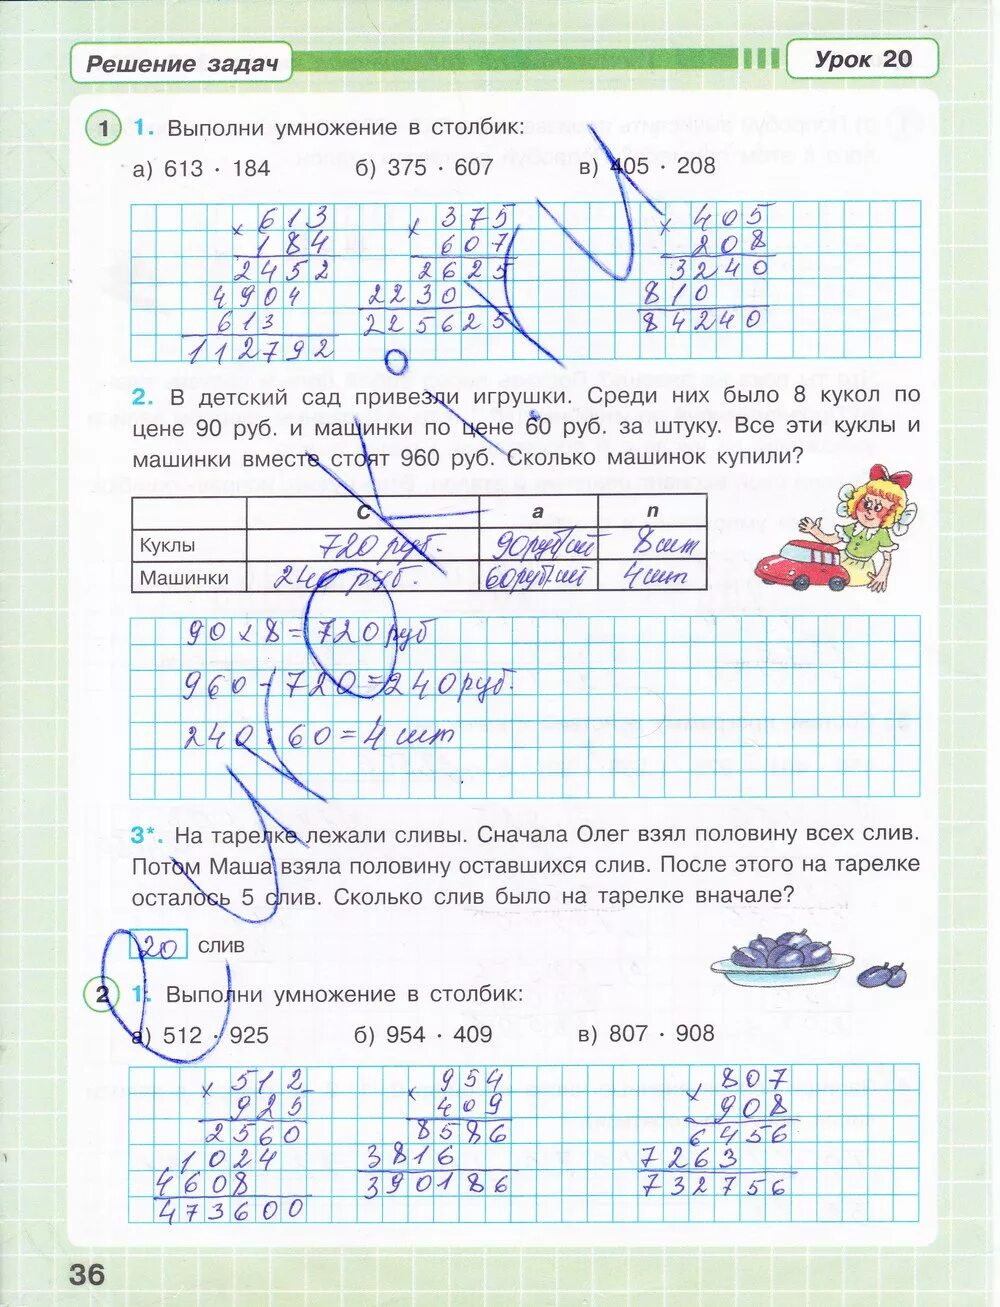 Решение задач
Урок 20
1 1. Выполни умножение в столбик:
а) 613 · 184 б) 375 · 607 в) 405 · 208
× 613 × 375 × 405
184 607 208
2452 2625 3240
4904 2230 810
613 225625 84240
112792
2. В детский сад привезли игрушки. Среди них было 8 кукол по
цене 90 руб. и машинки по цене 60 руб. за штуку. Все эти куклы и
машинки вместе стоят 960 руб. Сколько машинок купили?
С а n
Куклы 720 руб. 90руб/шт 8 шт
Машинки 240 руб. 60руб/шт 4 шт
90 × 8 = 720 руб
960 - 720 = 240 руб.
240 : 60 = 4 шт
3*. На тарелке лежали сливы. Сначала Олег взял половину всех слив.
Потом Маша взяла половину оставшихся слив. После этого на тарелке
осталось 5 слив. Сколько слив было на тарелке вначале?
20 слив
2 1. Выполни умножение в столбик:
а) 512 · 925 б) 954 · 409 в) 807 · 908
× 512 × 954 × 807
925 409 908
2560 8586 6456
1024 3816 7263
4608 390186 732756
473600
36